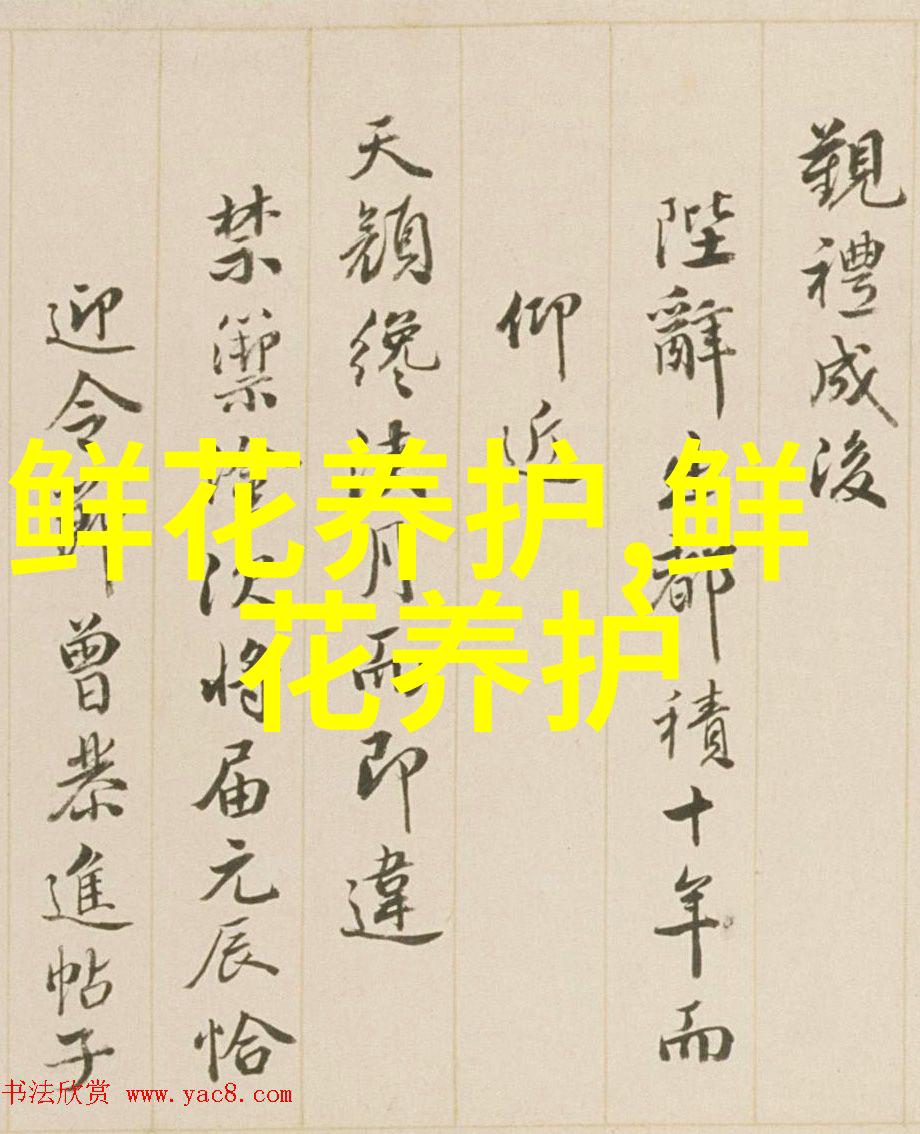 覲禮成後
陛辭都積十年而
仰近
天顏纔浹月而即違
禁籞次將届元辰恰
迎令節曾恭進帖子
鲜花养护,鲜
花养护
书法欣赏 www.yac8.com